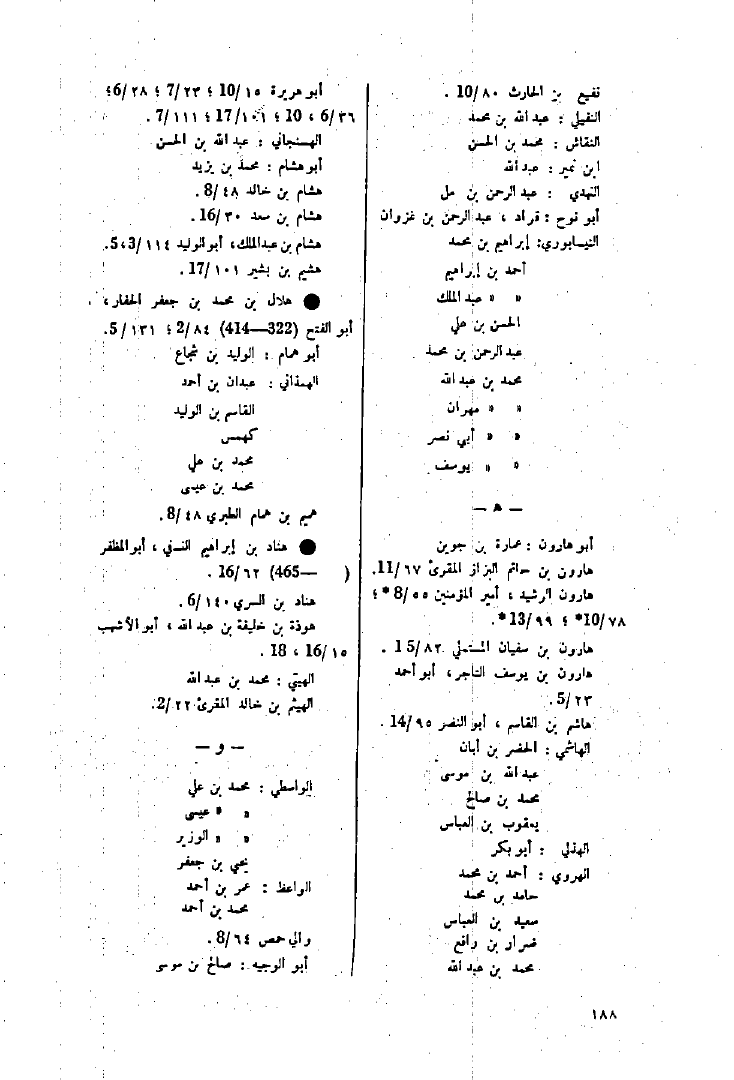 نفيع بن الحارث ٨٠/10 .
النفيلي : عبد الله بن محمد
النقاش : محمد بن الحسن
ابن نمير : عبد الله
النهدي : عبد الرحمن بن مل
أبو نوح : قراد ، عبد الرحمن بن غزوان
النيسابوري : إبراهيم بن محمد
أحمد بن إبراهيم
« « عبد الملك
الحسن بن علي
عبد الرحمن بن محمد
محمد بن عبد الله
« « مهران
« « أبي نصر
« « يوسف
— ه —
أبو هارون : عمارة بن جوين
هارون بن حاتم البزاز المقرئ ٦٧/11.
هارون الرشيد ، أمير المؤمنين ٥٥/8* ؛
٧٨/10* ؛ ٩٩/13*.
هارون بن سفيان المستملي ٨٢/15 .
هارون بن يوسف التاجر، أبو أحمد
٢٣/5.
هاشم بن القاسم ، أبو النضر ٩٥/14.
الهاشمي : الخضر بن أبان
عبد الله بن موسى
محمد بن صالح
يعقوب بن العباس
الهذلي : أبو بكر
الهروي : أحمد بن محمد
حامد بن محمد
سعيد بن العباس
ضرار بن رافع
محمد بن عبد الله
أبو هريرة ١٥/10 ؛ ٢٣/7 ؛ ٢٨/6؛
٣٦/6 ، 10 ؛ ١٠١/17 ؛ ١١١/7 .
الهسنجاني : عبد الله بن الحسن
أبو هشام : محمد بن يزيد
هشام بن خالد ٤٨/8 .
هشام بن سعد ٣٠/16.
هشام بن عبد الملك، أبو الوليد ١١٤/3،5.
هشيم بن بشير ١٠١/17.
● هلال بن محمد بن جعفر الحفار،
أبو الفتح (322—414) ٨٤/2 ؛ ١٣١/5.
أبو همام : الوليد بن شجاع
الهمذاني : عبدان بن أحمد
القاسم بن الوليد
كهمس
محمد بن علي
محمد بن عيسى
هميم بن همام الطبري ٤٨/8.
● هناد بن إبراهيم النسفي ، أبو المظفر
( —465) ٦٢/16 .
هناد بن السري ١٤٠/6.
هوذة بن خليفة بن عبد الله ، أبو الأشهب
١٥/16 ، 18 .
الهيتي : محمد بن عبد الله
الهيثم بن خالد المقرئ ٢٢/2.
— و —
الواسطي : محمد بن علي
« « عيسى
« « الوزير
يحيى بن جعفر
الواعظ : عمر بن أحمد
محمد بن أحمد
والي حمص ٦٤/8.
أبو الوجيه : صالح بن موسى
١٨٨